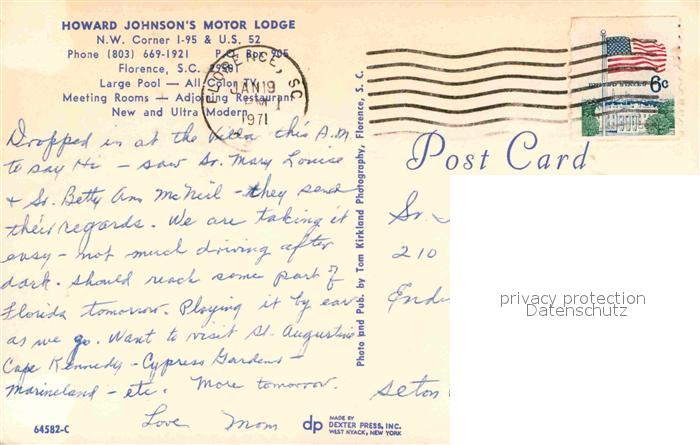 HOWARD JOHNSON'S MOTOR LODGE
N.W. Corner I-95 & U.S. 52
Phone (803) 669-1921 P.O. Box 905
Florence, S.C. 29501
Large Pool — All Color TV
Meeting Rooms — Adjoining Restaurant
New and Ultra Modern
FLORENCE, SC
JAN 19
PM
1971
UNITED STATES
6c
Dropped in at the Villa this A.M.
to say Hi — saw Sr. Mary Louise
& Sr. Betty Ann McNeil — they send
their regards. We are taking it
easy — not much driving after
dark. Should reach some part of
Florida tomorrow. Playing it by ear
as we go. Want to visit St. Augustine
Cape Kennedy — Cypress Gardens —
Marineland — etc. More tomorrow.
Love Mom
64582-C
Photo and Pub. by Tom Kirkland Photography, Florence, S. C.
dp
MADE BY
DEXTER PRESS, INC.
WEST NYACK, NEW YORK
Post Card
Sr.
210
Endi
Seton
privacy protection
Datenschutz